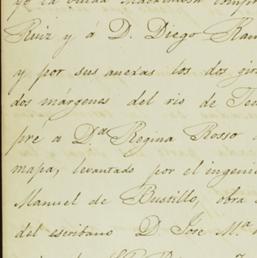 pé la citada Hacienda compr
Ruiz y a D. Diego Ram
y por sus anexas los dos gir
dos márgenes del rio de Te
pré a Dª Regina Rosso
mapa, levantado por el ingeni
Manuel de Bustillo, obra
del escribano D. Jose Mª